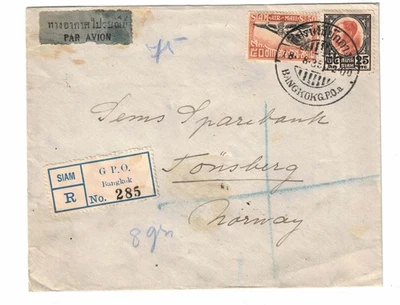 ทางอากาศไปรษณีย์
PAR AVION
75
SIAM AIR MAIL
25
BANGKOK G.P.O.a
Sems Sparebank
Tönsberg
Norway
SIAM
R
G P.O.
Bangkok
No. 285
8 gr